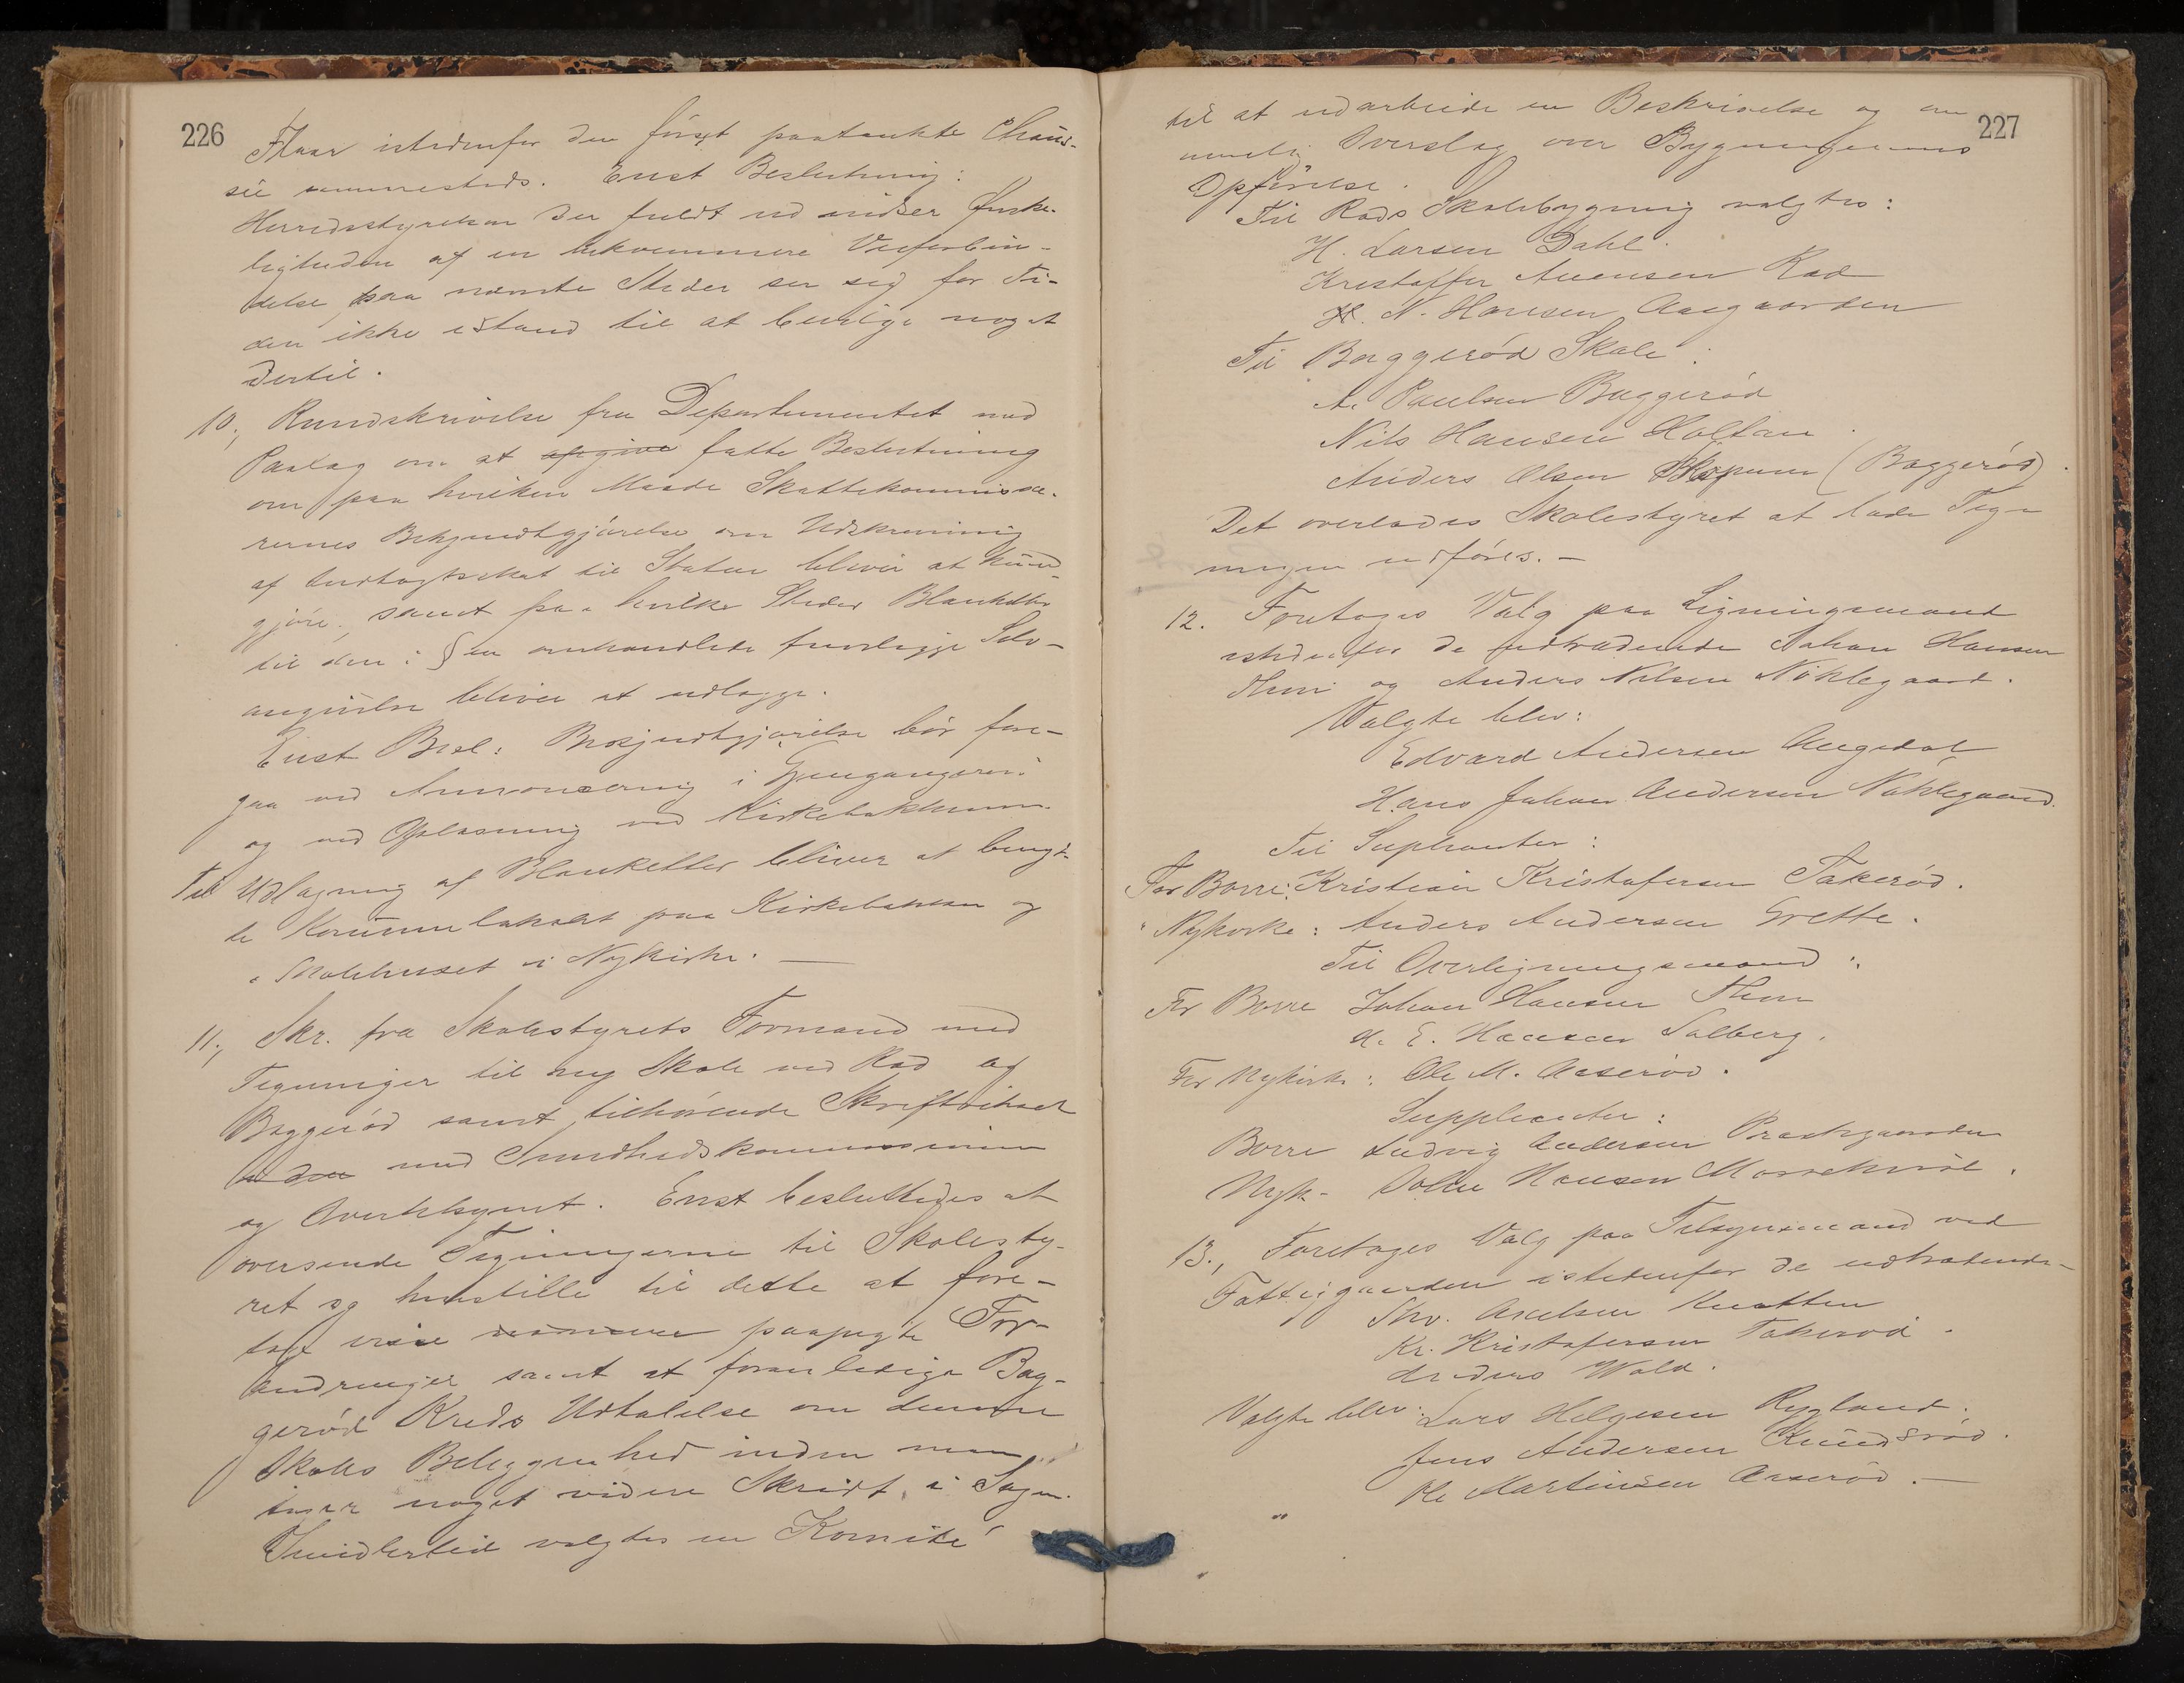 226
istedenfor den först paatænkte Chaus-
sée sammesteds. Enst Beslutning:
Herredsstyrelsen der fuldt ud indser Ønske-
ligheden af en bekvemmere Veiforbin-
delse paa nævnte Steder ser sig for Ti-
den ikke istand til at bevilge noget
dertil.
10., Rundskrivelse fra Departementet med
Paalæg om at afgive fatte Beslutning
om paa hvilken Maade Skattekommissæ-
rernes Bekjendtgjörelse om Udskrivning
af Indtægtsskat til Staten bliver at kund-
gjöre, samt paa hvilke Steder Blanketter
til den i § en omhandlede frivillige Selv-
angivelse bliver at udlægge.
Enst Besl: Bekjendtgjörelse bör fore-
gaa ved Annoncering i Gjengangeren
og ved Oplæsning ved Kirkebakkerne.
Til Udlægning af Blanketter bliver at benyt-
te Kommunelokalet paa Kirkebakken og
Skolehuset i Nykirke. —
11., Skr. fra Skolestyrets Formand med
Tegninger til ny Skole ved Rød og
Baggeröd samt tilhörende Skriftveksel
med Sundhedskommissionen
og Overtilsynet. Enst besluttedes at
oversende Tegningerne til Skolesty-
ret og henstille til dette at fore-
tage visse paapegte For-
andringer samt at foranledige Bag-
geröd Kreds Udtalelse om denne
Skoles Beliggenhed inden man
noget videre Skridt i Sagen.
Imidlertid valgtes en Komité
227
til at udarbeide en Beskrivelse og en
Overslag over Bygningernes
Opförelse.
Til Røds Skolebygning valgtes:
H. Larsen Dahl.
Kristoffer Svensen Rød
N. Hansen Aasgaarden
Til Baggeröd Skole:
A. Paulsen Baggeröd
Nils Hansen Holtan.
Anders Olsen (Baggeröd).
Det overlades Skolestyret at lade Teg-
ningen udföres. —
12. Foretages Valg paa Ligningsmænd
istedenfor de udtrædende Johan Hansen
Thun og Anders Nilsen Nöklegaard.
Valgte blev:
Edvard Andersen Augedal
Hans Johan Andersen Nöklegaard.
Til Suplanter:
For Borre: Kristian Kristofersen Takeröd.
" Nykirke: Anders Andersen Grette.
Til Overligningsmænd:
For Borre Johan Hansen Thun
H. E. Hansen Solberg.
For Nykirke: Ole M. Aaseröd.
Supplanter:
Borre Ludvig Andersen Prestegaarden
Nyk. - Hansen
13., Foretages Valg paa Tilsynsmænd ved
Fattiggaarden istedenfor de udtrædende-
Axelsen Knatten
Kr. Kristofersen Takeröd.
Anders Wold.
Valgte blev: Lars Helgesen Rygland.
Jens Andersen Knudsröd.
Ole Martinsen Aaseröd. —